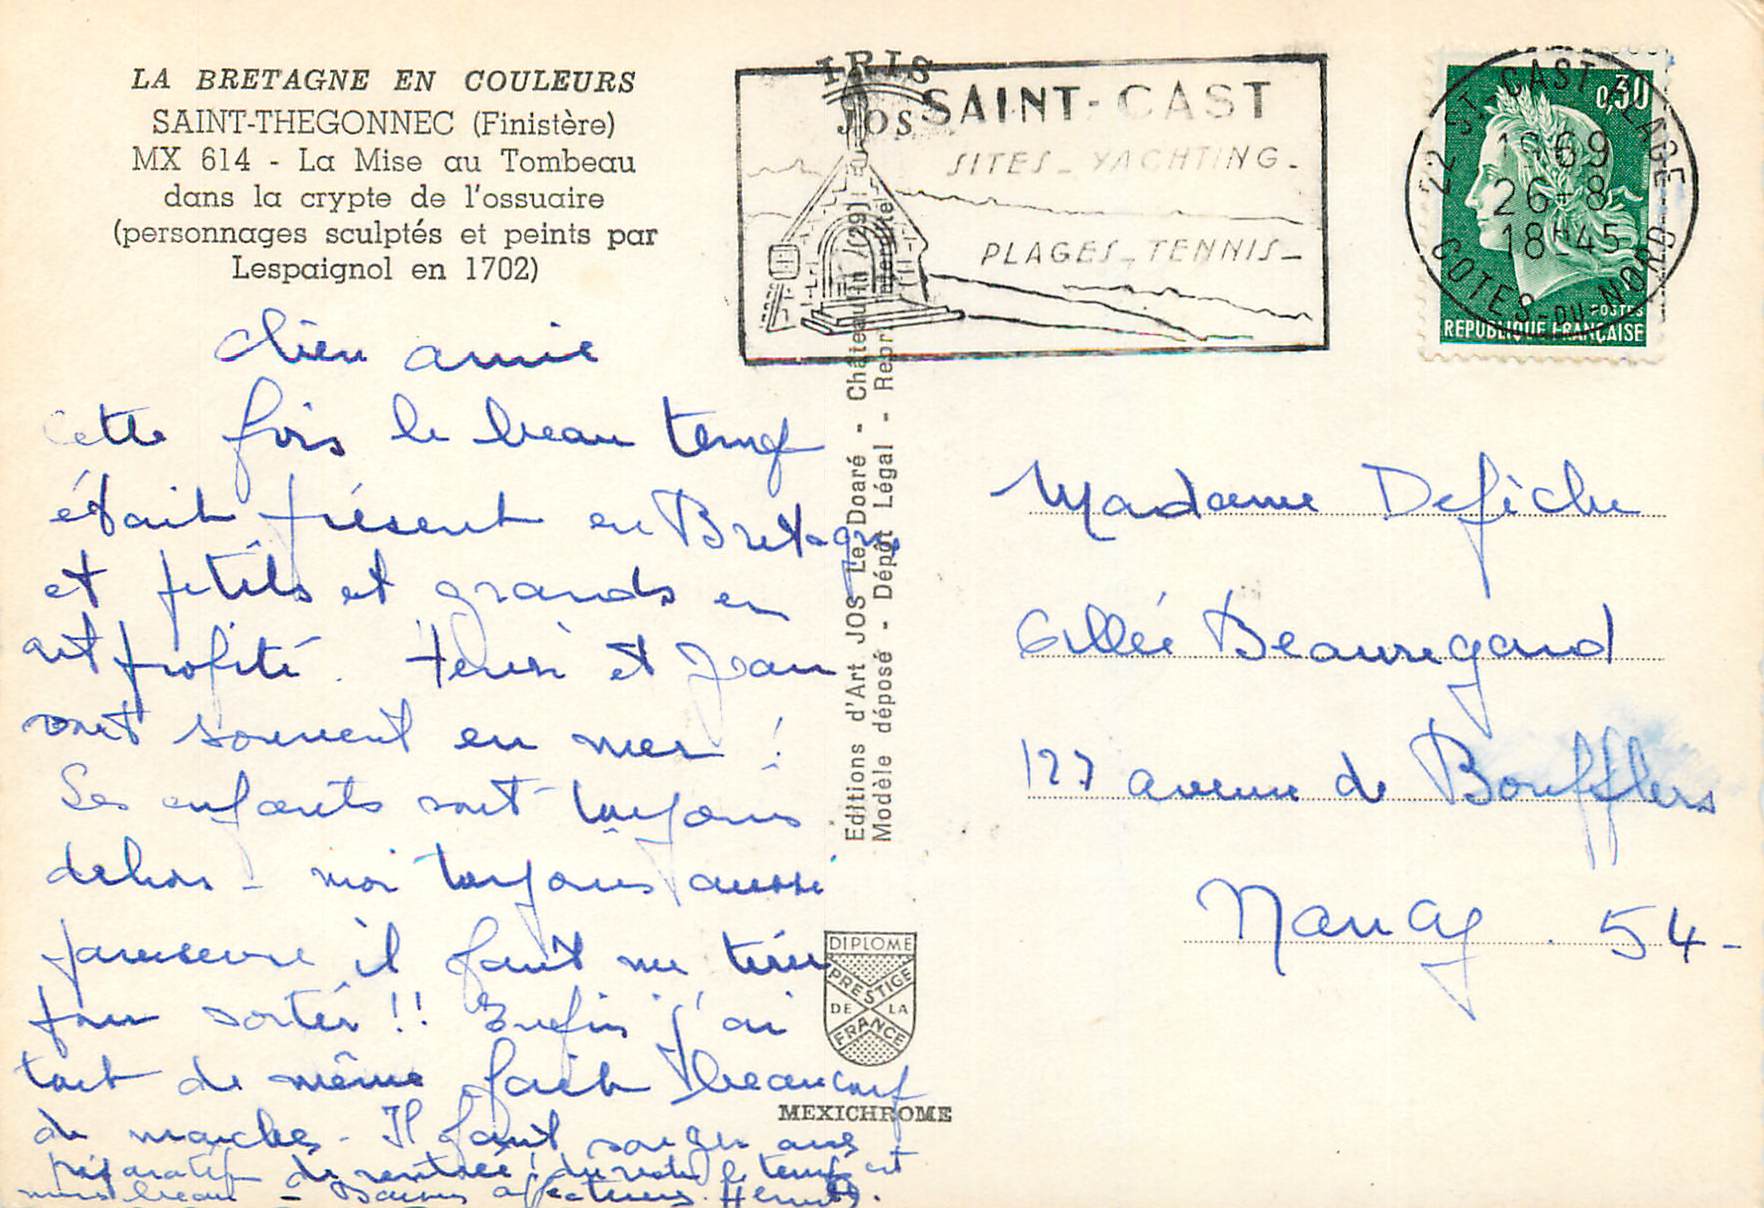 LA BRETAGNE EN COULEURS
SAINT-THEGONNEC (Finistère)
MX 614 - La Mise au Tombeau
dans la crypte de l'ossuaire
(personnages sculptés et peints par
Lespaignol en 1702)
IRIS
JOS
SAINT-CAST
SITES_YACHTING_
PLAGES_TENNIS_
22 ST CAST PLAGE
1969
26-8
18H45
COTES-DU-NORD
0,30
POSTES
REPUBLIQUE FRANÇAISE
Chère amie
Cette fois le beau temps
était présent en Bretagne
et petits et grands en
ont profité. Henri et Jean
vont souvent en mer !
Les enfants sont toujours
dehors - moi toujours aussi
paresseuse il faut me tirer
pour sortir !! Enfin j'ai
tout de même fait beaucoup
de marches - Il faut songer aux
préparatifs de rentrée ! du reste le temps est
moins beau - affectueux
Editions d'Art JOS Le Doaré - Châteaulin (29)
Modèle déposé - Dépôt Légal - Repr. interdite
DIPLOME
PRESTIGE
DE LA
FRANCE
MEXICHROME
Madame Defèche
Allée Beauregard
127 avenue de Boufflers
Nancy . 54-